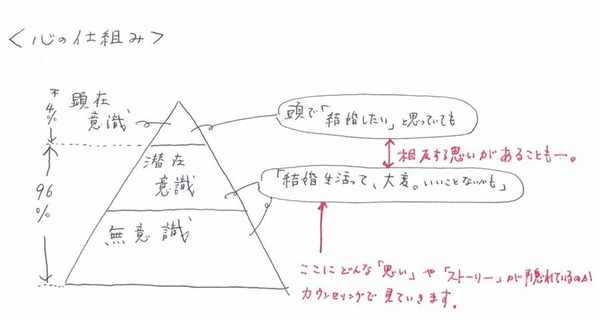 ＜心の仕組み＞
4%
顕在
意識
頭で「結婚したい」と思っていても
相反する思いがあることも―。
潜在
意識
「結婚生活って、大変。いいことないかも」
96
%
無意識
ここにどんな「思い」や「ストーリー」が隠れているのか
カウンセリングで見ていきます。